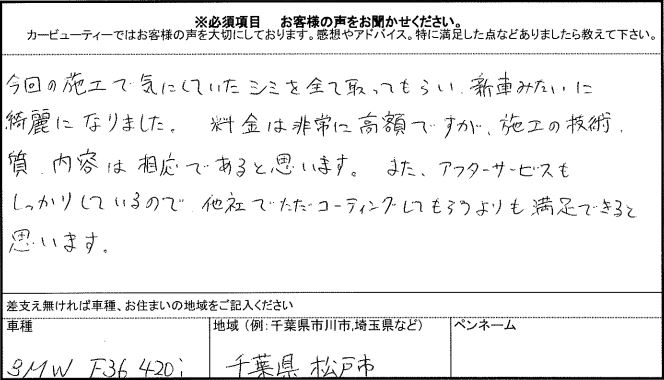 ※必須項目　お客様の声をお聞かせください。
カービューティーではお客様の声を大切にしております。感想やアドバイス。特に満足した点などありましたら教えて下さい。
今回の施工で気にしていたシミを全て取ってもらい、新車みたいに
綺麗になりました。 料金は非常に高額ですが、施工の技術、
質、内容は相応であると思います。 また、アフターサービスも
しっかりしているので、他社でただコーティングしてもらうよりも満足できると
思います。
差支え無ければ車種、お住まいの地域をご記入ください
車種 地域（例：千葉県市川市,埼玉県など） ペンネーム
BMW F36 420i 千葉県 松戸市